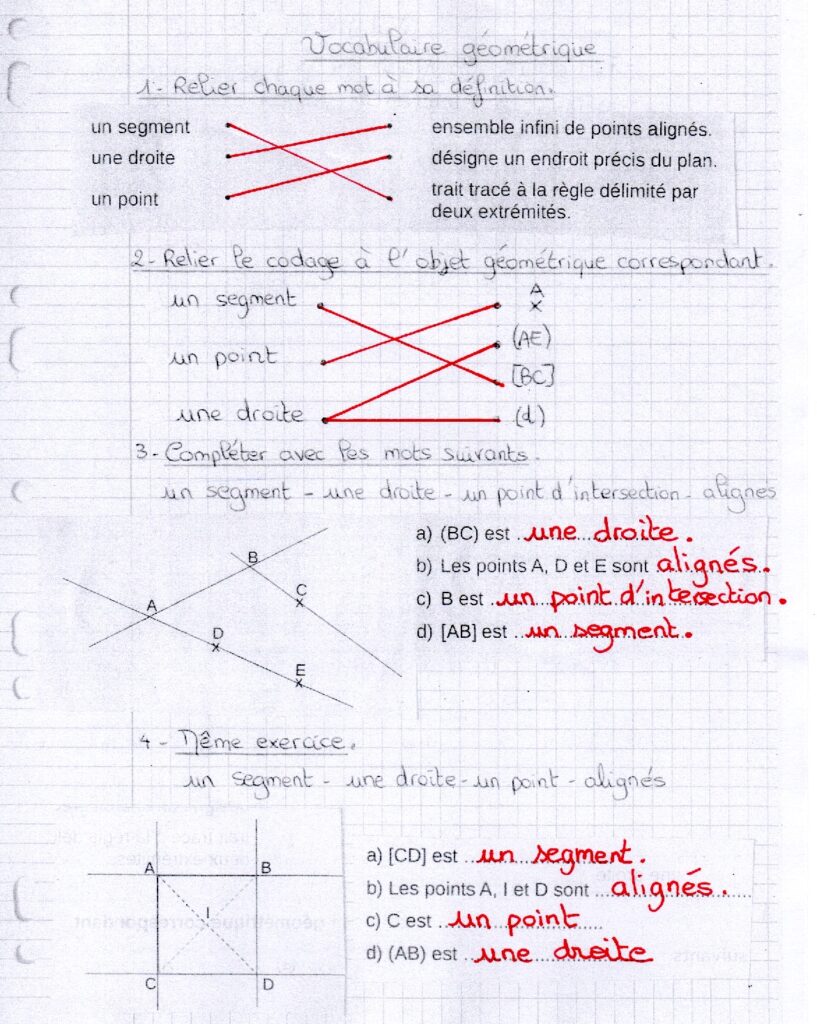 Vocabulaire géométrique
1- Relier chaque mot à sa définition.
un segment
ensemble infini de points alignés.
une droite
désigne un endroit précis du plan.
un point
trait tracé à la règle délimité par
deux extrémités.
2- Relier le codage à l'objet géométrique correspondant.
un segment
A
x
un point
(AE)
[BC]
une droite
(d)
3- Compléter avec les mots suivants.
un segment - une droite - un point d'intersection - alignes
B
C
A
D
E
a) (BC) est une droite.
b) Les points A, D et E sont alignés.
c) B est un point d'intersection.
d) [AB] est un segment.
4- Même exercice.
un segment - une droite - un point - alignés
A
B
I
C
D
a) [CD] est un segment.
b) Les points A, I et D sont alignés.
c) C est un point
d) (AB) est une droite